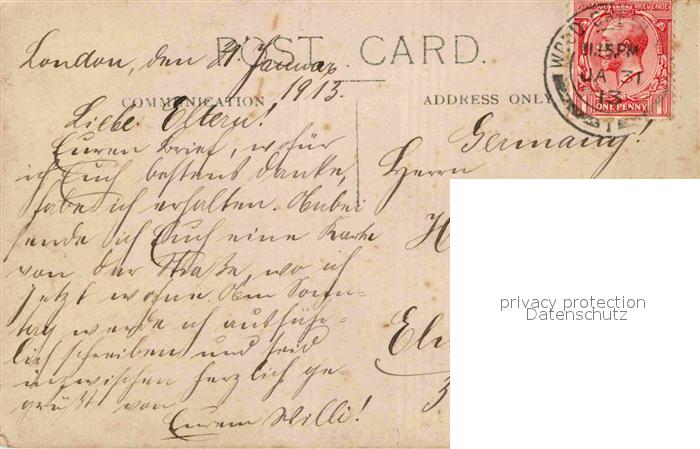 POST CARD.
London, den 31 Januar
1913.
COMMUNICATION
ADDRESS ONLY
Liebe Eltern!
Euren Brief, wofür
ich Euch bestens danke,
habe ich erhalten. Anbei
sende ich Euch eine Karte
von der Straße, wo ich
jetzt wohne. Am Sonn-
tag werde ich ausführ-
lich schreiben und seid
inzwischen herzlich ge-
grüßt von
Eurem Willi!
Germany!
Herrn
H
El
3
POSTAGE REVENUE
ONE PENNY
WOOD
11.15 PM
JA 31
13
privacy protection
Datenschutz